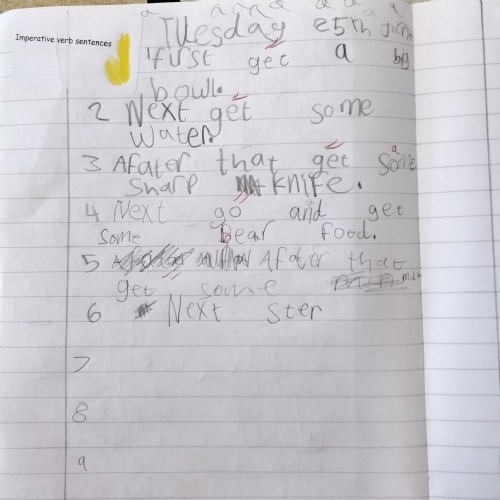 Tuesday 25th June
Imperative verb sentences
1 first get a big
bowl.
2 Next get some
water.
3 Afater that get some
sharp knife.
4 Next go and get
some bear food.
5 Afater that
get some milk
6 Next ster
7
8
9